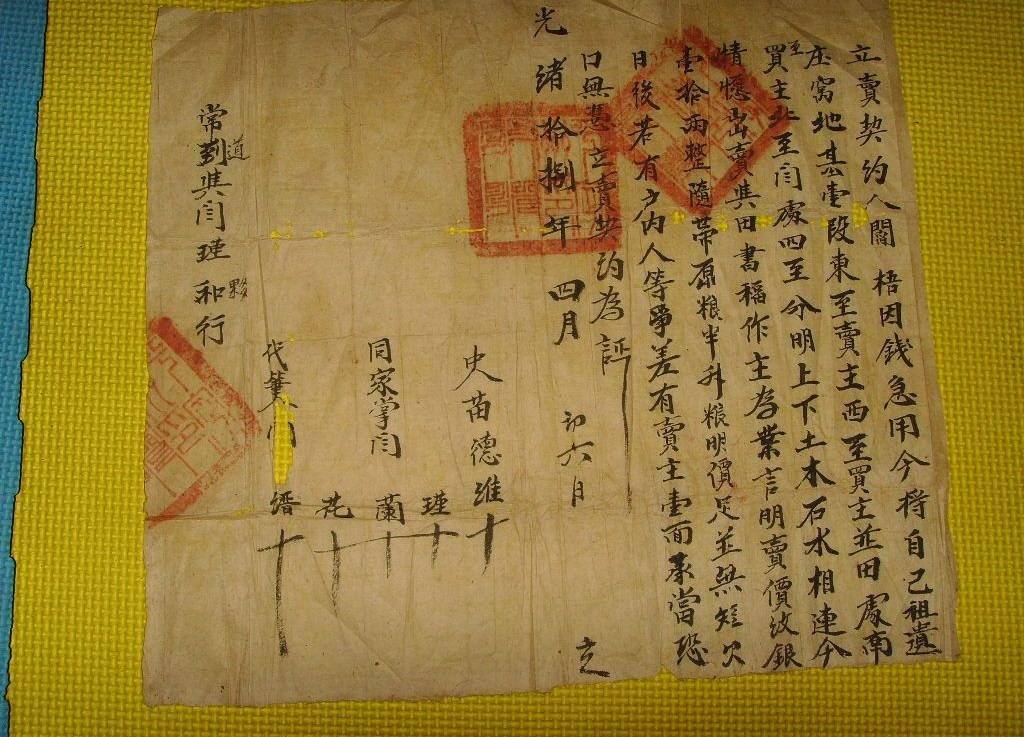 立賣契約人閻 梧因錢急用今将自己祖遺
庄窩地基壹段東至賣主西至買主並田處南
至
買主北至閆處四至分明上下土木石水相連今
情愿出賣與田書福作主為業言明賣價紋銀
壹拾兩整隨帶原粮半升粮明價足並無短欠
日後若有户内人等爭差有賣主壹面承當恐
口無憑立賣契約為証
光緒拾捌年 四月 初六日 立
史苗德維十
瑾十
同家掌閆 蘭十
花十
代筆閆 縉十
常到與閆瑾和行
道 夥